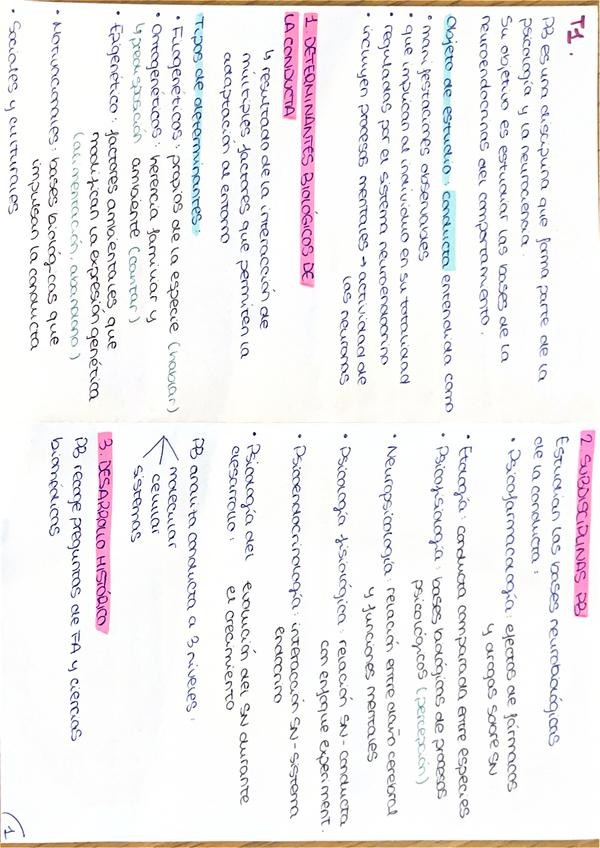 T1.
PB es una disciplina que forma parte de la
psicología y la neurociencia.
Su objetivo es estudiar las bases de la
neuroendocrinas del comportamiento.
Objeto de estudio: conducta entendida como
• manifestaciones observables
• que implican al individuo en su totalidad
• regulados por el sistema neuroendocrino
• incluyen procesos mentales → actividad de
las neuronas
1. DETERMINANTES BIOLÓGICOS DE
LA CONDUCTA
↳ resultado de la interacción de
múltiples factores que permiten la
adaptación al entorno
Tipos de determinantes:
• Filogenéticos: propios de la especie (hablar)
• Ontogenéticos: herencia familiar y
↳ predisposición ambiente (cantar)
• Epigenético: factores ambientales que
modifican la expresión genética
(alimentación, abandono)
• Motivacionales: bases biológicas que
impulsan la conducta
• Sociales y culturales
2. SUBDISCIPLINAS PB
Estudian las bases neurobiológicas
de la conducta:
• Psicofarmacología: efectos de fármacos
y drogas sobre SN
• Etología: conducta comparada entre especies
• Psicofisiología: bases biológicas de procesos
psicológicos (percepción)
• Neuropsicología: relación entre daño cerebral
y funciones mentales
• Psicología fisiológica: relación SN-conducta
con enfoque experiment.
• Psicoendocrinología: interacción SN-sistema
endocrino
• Psicología del evolución del SN durante
desarrollo: el crecimiento
PB analiza conducta a 3 niveles:
molecular
celular
sistemas
3. DESARROLLO HISTÓRICO
PB recoge preguntas de FA y ciencias
biomédicas
1